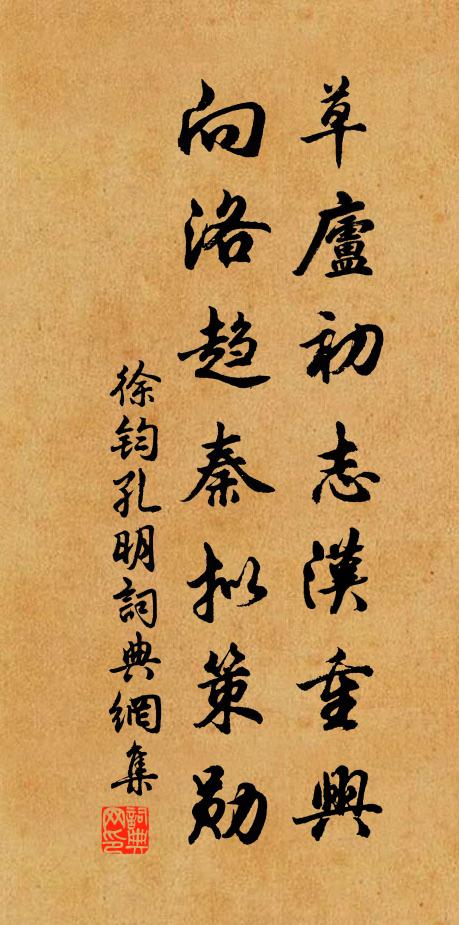 草廬初志漢重興
向洛趋秦拟策勋
徐钧孔明詞典網集
詞典网印